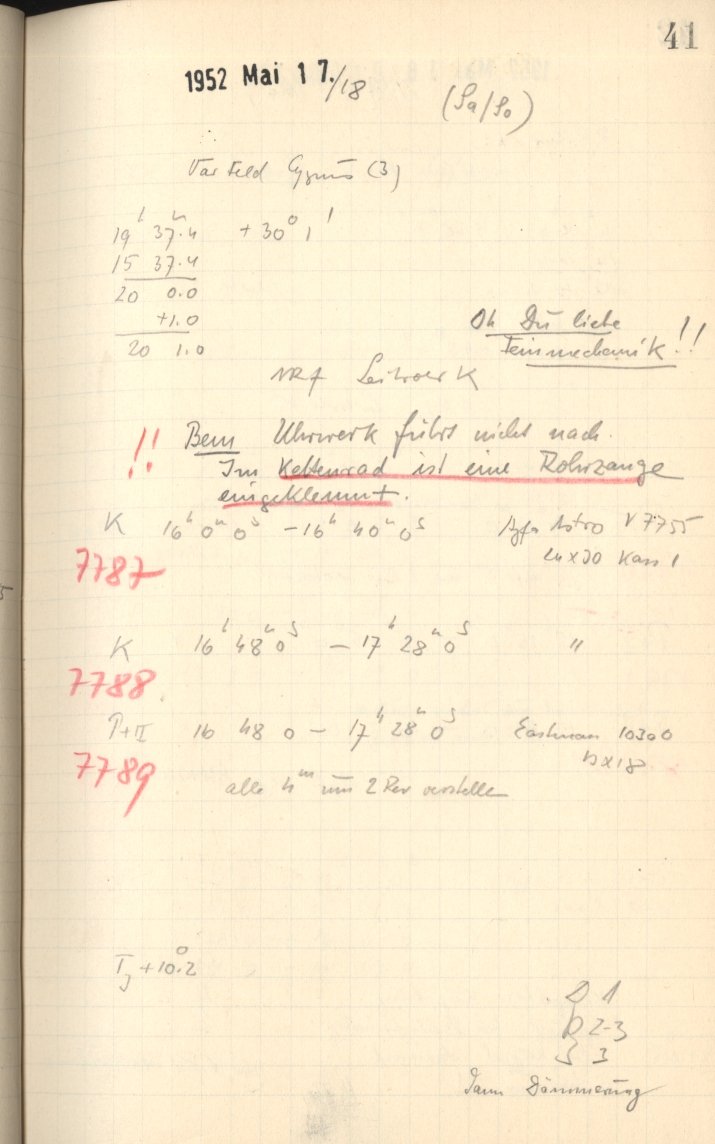 41
1952 Mai 17./18 (Sa/So)
Var Feld Cygnus (3)
19ʰ 37ᵐ.4 +30° 1'
15 37.4
20 0.0
+1.0
20 1.0
Oh Du liebe
Feinmechanik!!
K
!! Bem Uhrwerk führt nicht nach.
Im Kettenrad ist eine Rohrzange
eingeklemmt.
K 16ʰ 0ᵐ 0ˢ – 16ʰ 40ᵐ 0ˢ Agfa Astro V 7755
24x30 Kass 1
7787
K 16ʰ 48ᵐ 0ˢ – 17ʰ 28ᵐ 0ˢ "
7788
P+II 16 48 0 – 17ʰ 28ᵐ 0ˢ Eastman 103aO
13x18
7789
alle 4ᵐ um 2 Rev verstellen
+10°.2
D 1
R 2-3
S 3
Dann Dämmerung